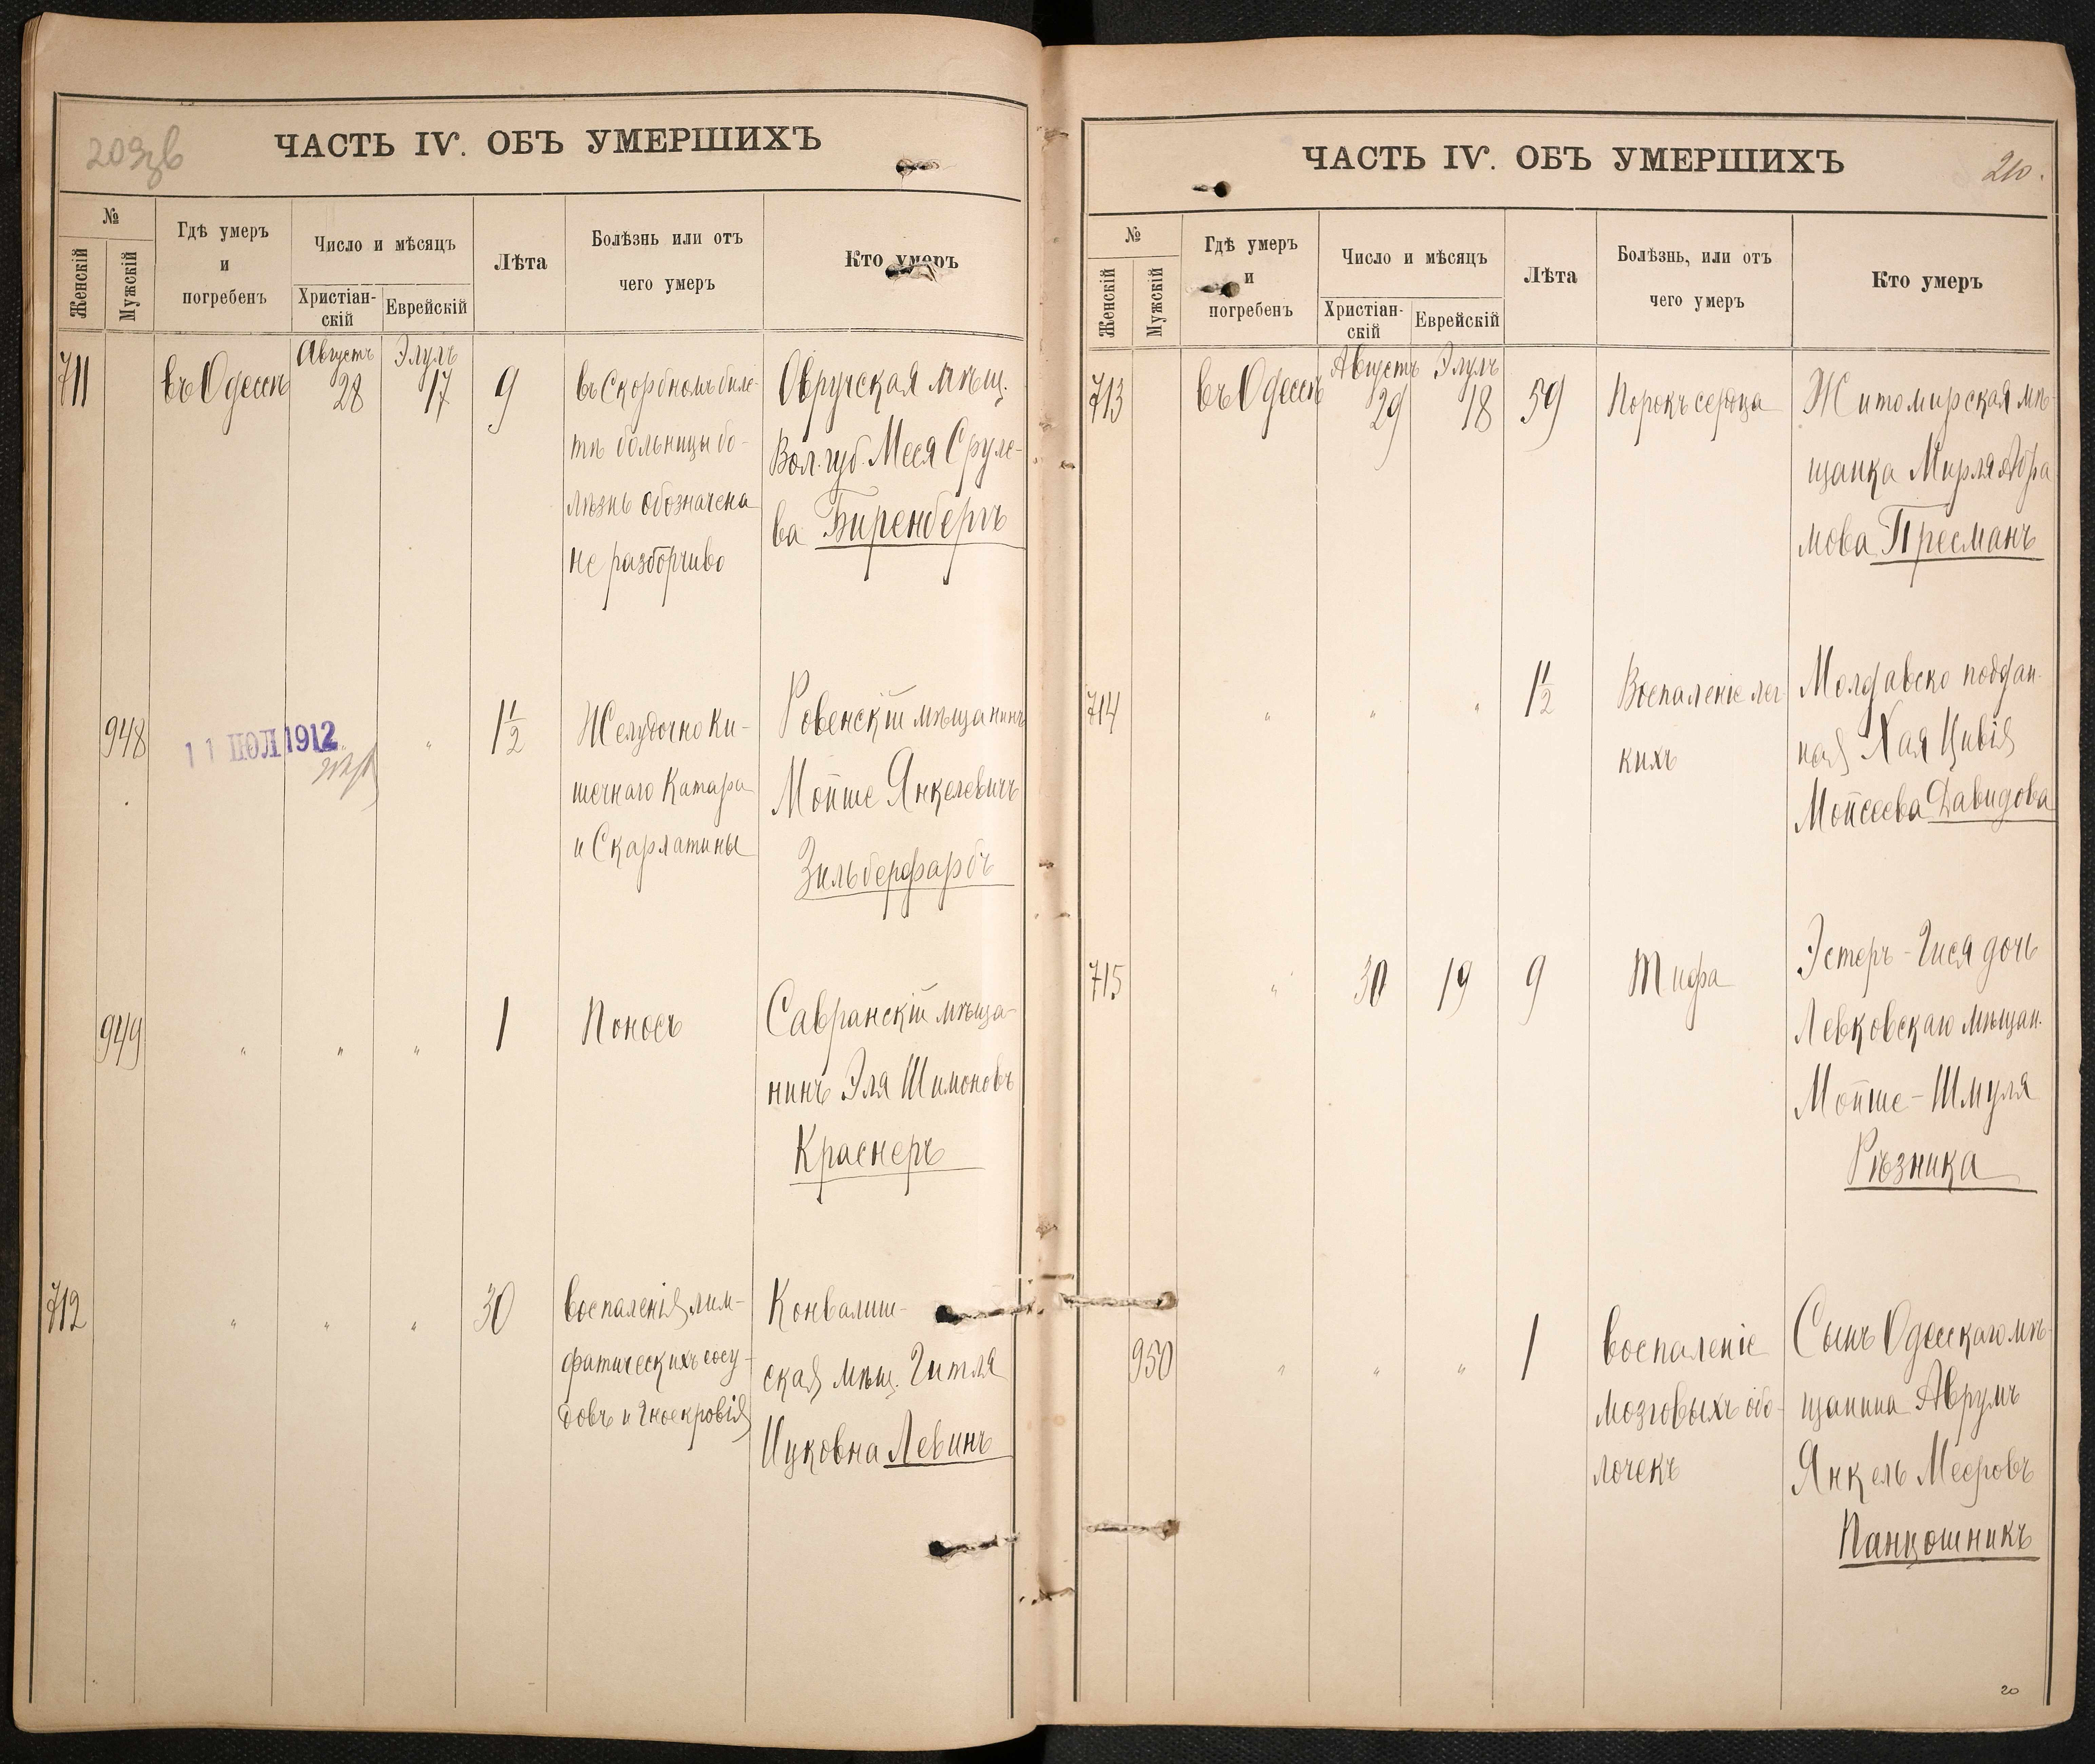 209зв
ЧАСТЬ IV. ОБЪ УМЕРШИХЪ
№
Женскій
Мужскій
Гдѣ умеръ
и
погребенъ
Число и мѣсяцъ
Христіан-
скій
Еврейскій
Лѣта
Болѣзнь или отъ
чего умеръ
Кто умеръ
711
въ Одессѣ
Августъ
28
Элулъ
17
9
въ Скорбномъ биле-
тѣ больницы бо-
лѣзнь обозначена
не разборчиво
Овручская мѣщ.
Вол. губ. Меся Сруле-
ва Биренбергъ
948
11 ІЮЛ 1912
"
1 1/2
Желудочно Ки-
шечнаго Катара
и Скарлатины
Ровенскій мѣщанинъ
Мойше Янкелевичъ
Зильберфарбъ
949
"
"
"
1
Поносъ
Савранскій мѣща-
нинъ Эля Шимоновъ
Краснеръ
712
"
"
"
30
воспаленія лим-
фатическихъ сосу-
довъ и Гноекровія
Конвалиш-
ская мѣщ. Гитля
Ицковна Левинъ
ЧАСТЬ IV. ОБЪ УМЕРШИХЪ
210.
№
Женскій
Мужскій
Гдѣ умеръ
и
погребенъ
Число и мѣсяцъ
Христіан-
скій
Еврейскій
Лѣта
Болѣзнь, или отъ
чего умеръ
Кто умеръ
713
въ Одессѣ
Августъ
29
Элулъ
18
59
Порокъ сердца
Житомирская мѣ-
щанка Мирля Абра
мова Пресманъ
714
"
"
"
1 1/2
Воспаленіе лег-
кихъ
Молдавско поддан-
ная Хая Цивія
Мойсеева Давидова
715
"
30
19
9
Тифа
Эстеръ-Гися дочь
Левковскаго мѣщан.
Мойше-Шмуля
Рѣзника
950
"
"
"
1
воспаленіе
мозговыхъ обо-
лочекъ
Сынъ Одесскаго мѣ-
щанина Аврумъ
Янкель Мееровъ
Панцошникъ
20